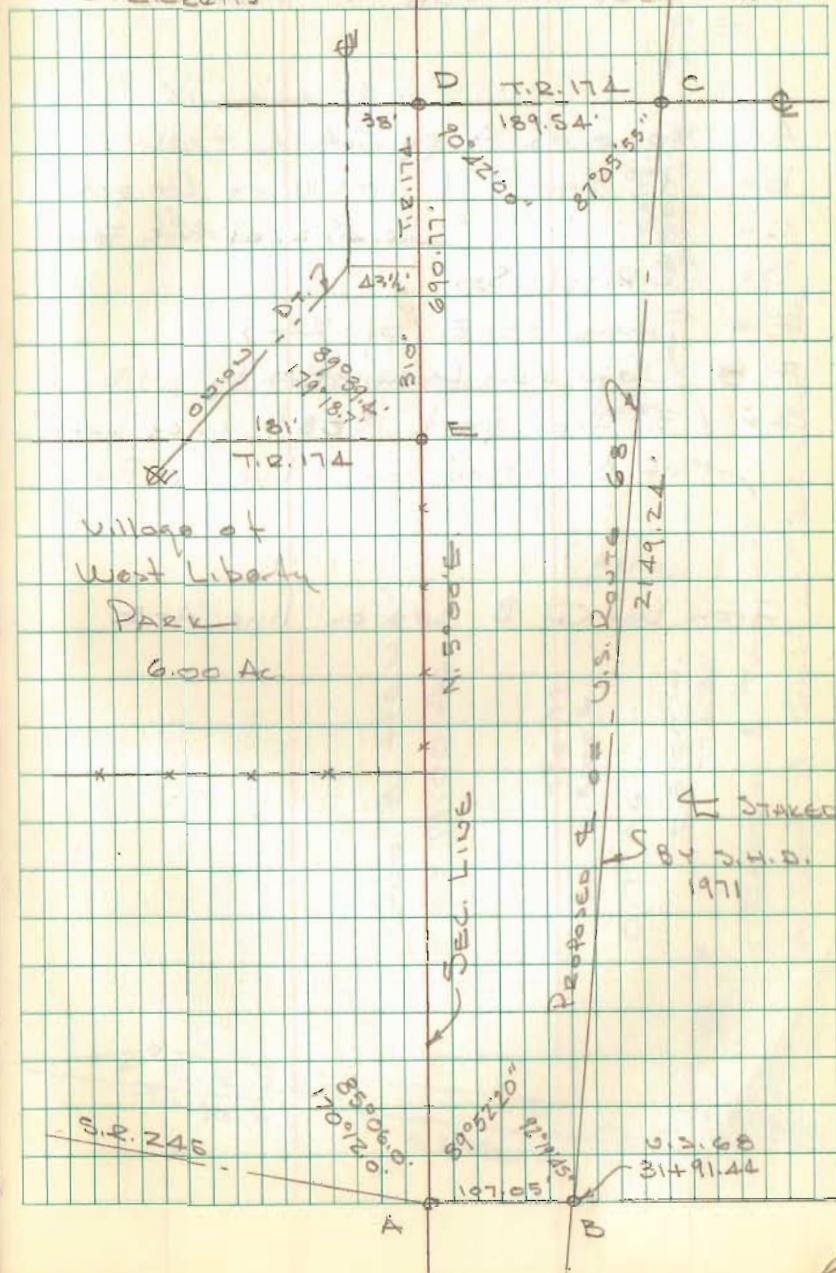 D T.R. 174 C ℄
38' 189.54'
90°42'00" 87°05'55"
T.R. 174
690.77'
43½'
DT.?
310'
Q
89°39.4'
179°18.7'
181' E
T.R. 174
Village of
West Liberty
PARK
6.00 Ac.
N. 5°00'E.
PROPOSED ℄ OF U.S. ROUTE 68
2149.24'
℄ STAKED
BY S.H.D.
1971
SEC. LINE
S.R. 245
85°06.0'
170°12.0'
89°52'20"
92°19'45"
U.S. 68
31+91.44
107.05'
A B